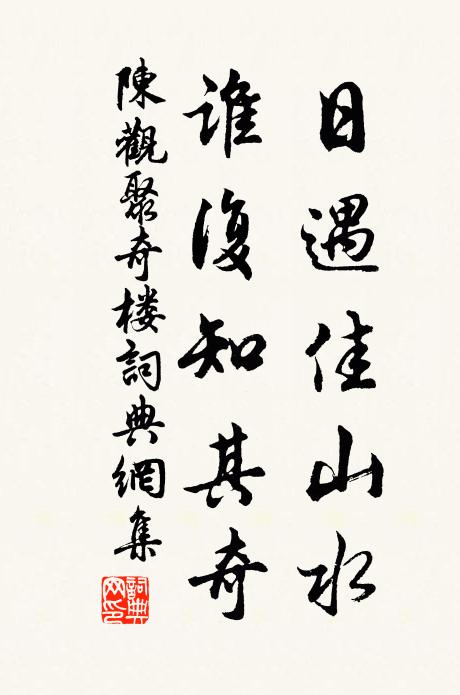 日遇佳山水
誰復知其奇
陳觀聚奇楼詞典網集
詞典网印